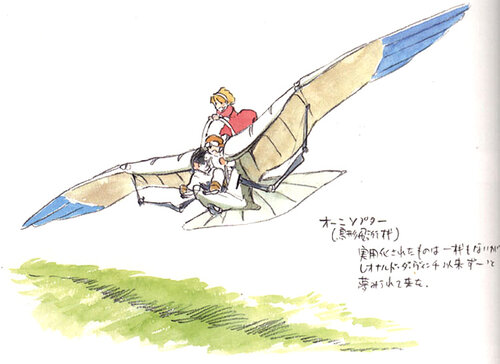 オーニソプター
(鳥形飛行機)
実用化されたものは一機もないが
レオナルド・ダ・ヴィンチ以来ずーっと
夢みられて来た。